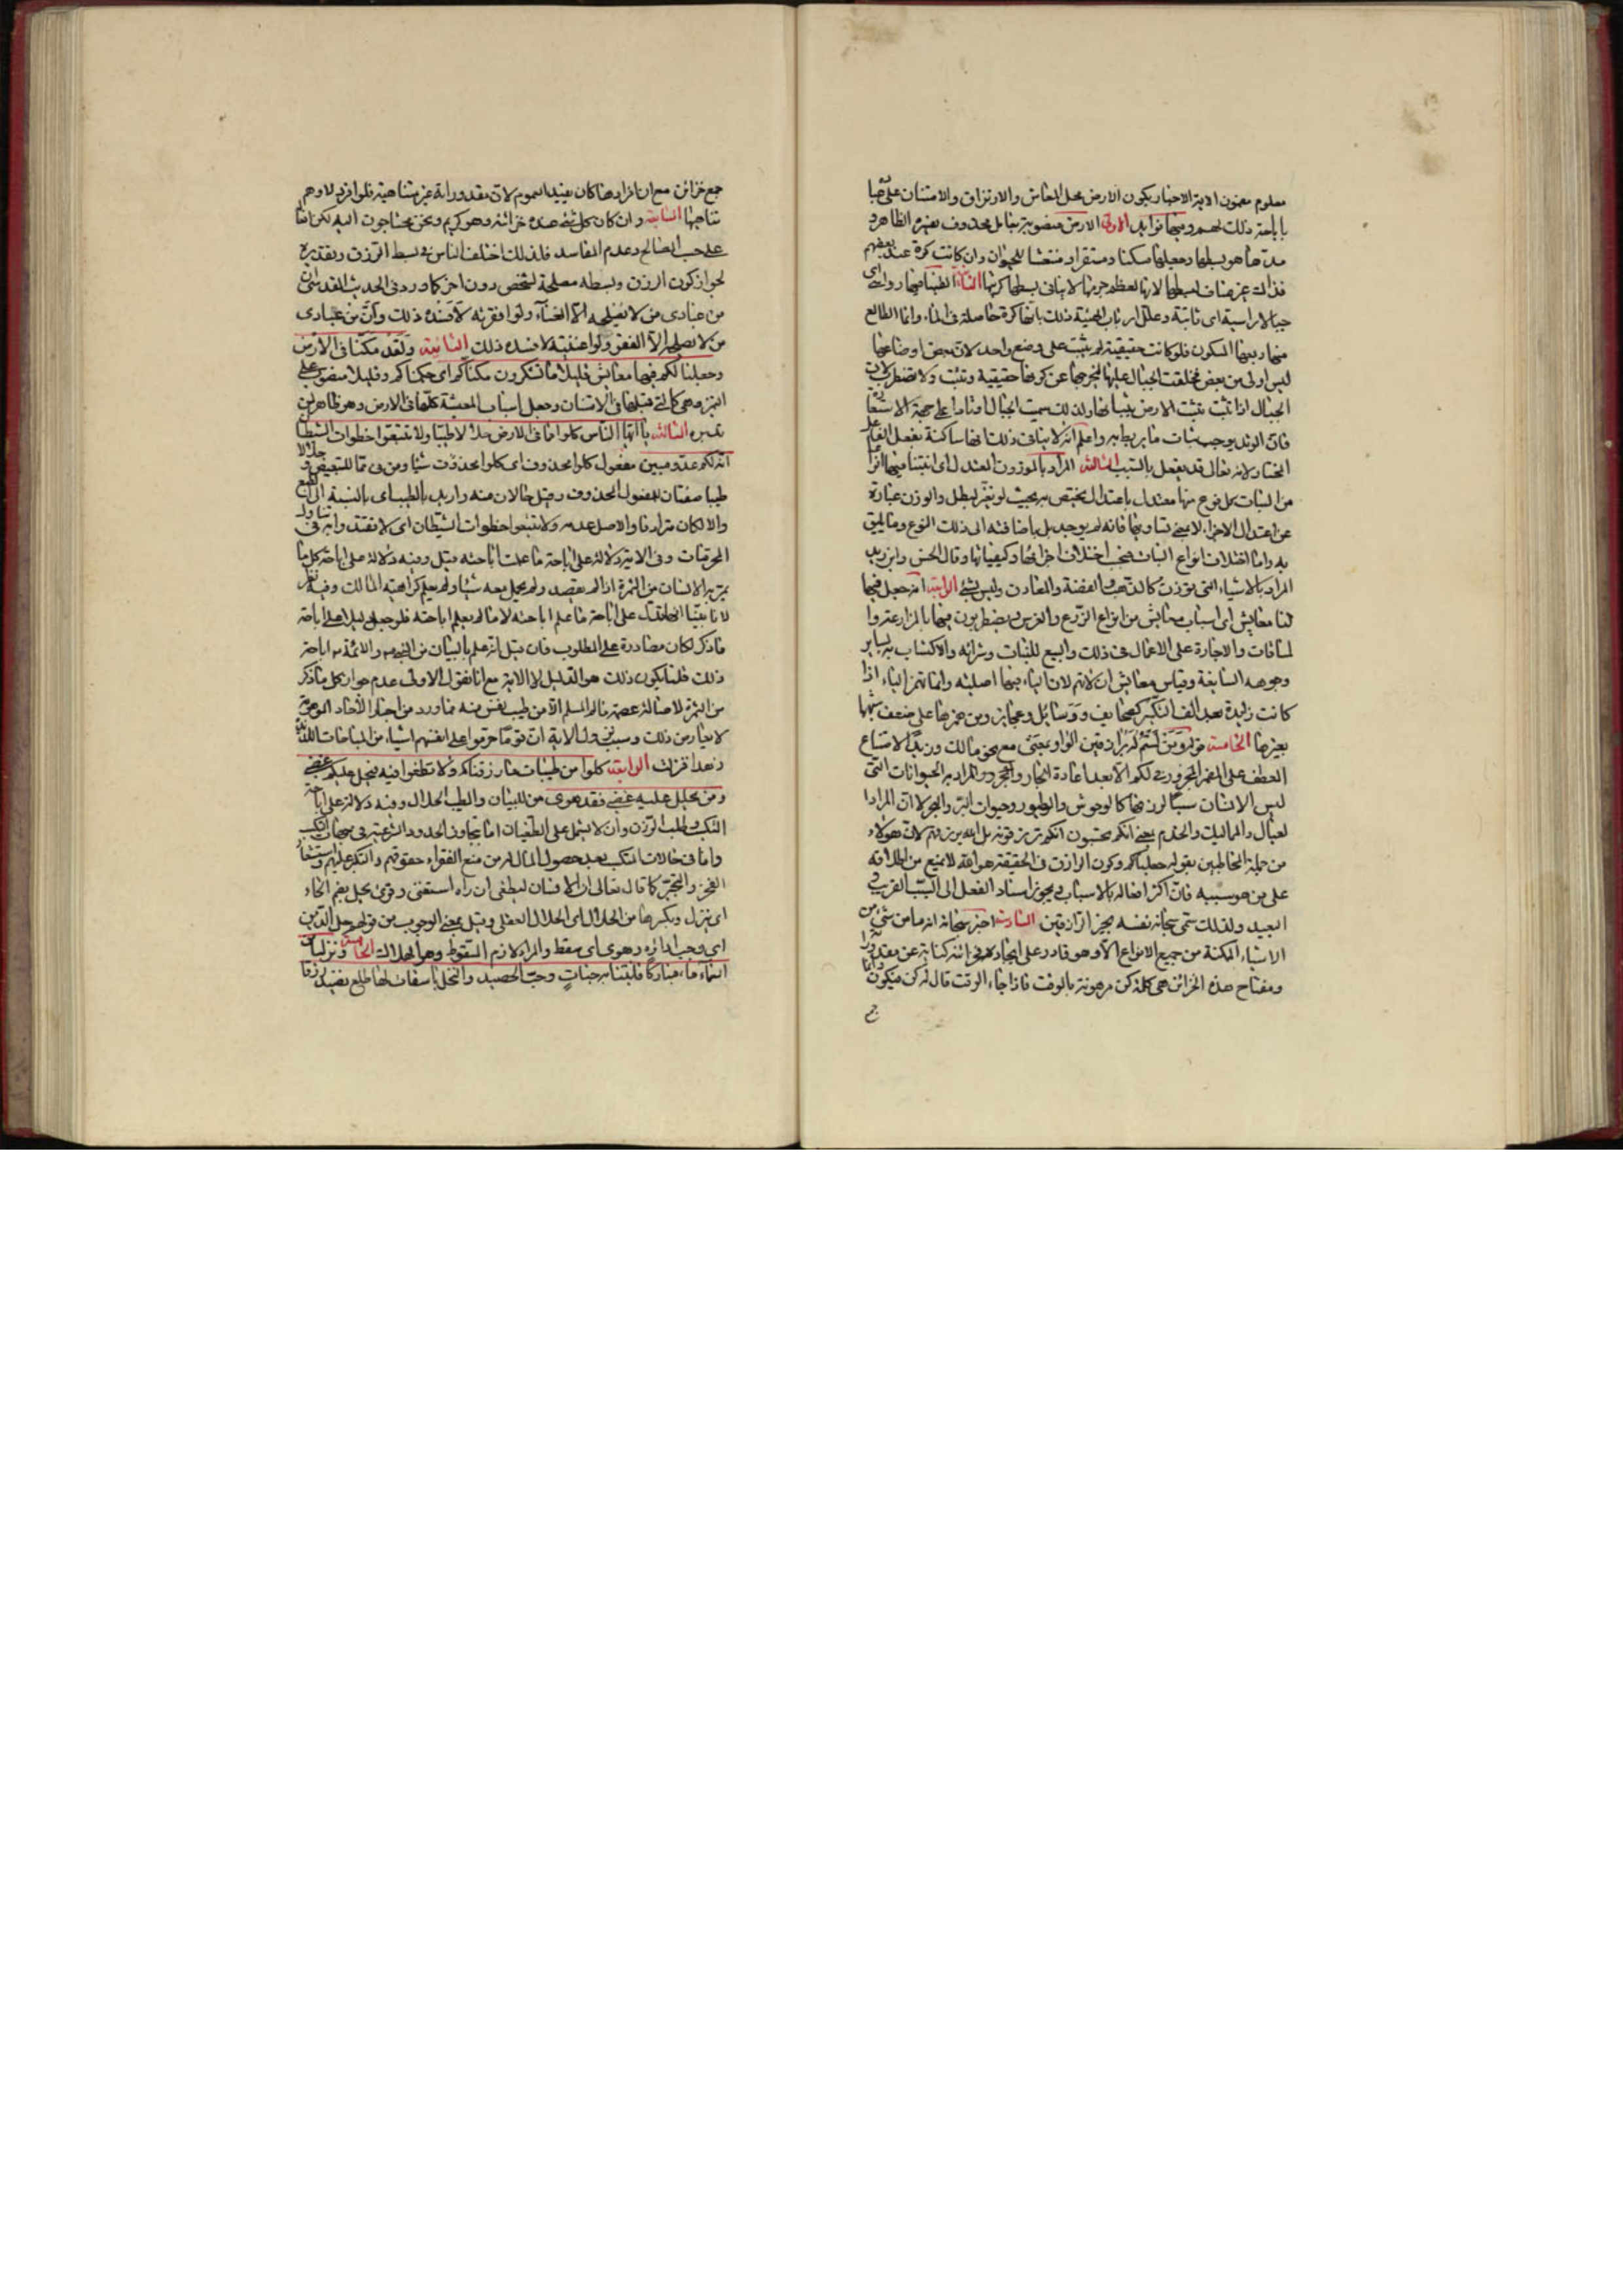 معلوم مضمون الاية الاخبار بكون الارض محل المعاش والارتزاق والامتنان على
باباحة ذلك لهم وفيها فوايد الاولى الارض منصوبة بعامل محذوف يفسره الظاهر و
مدّها هو بسطها وجعلها مسكنا ومستقرا للحيوان وان كانت كرة عند بعضهم
فذاك غير مناف لبسطها لانها لعظم جرمها لا ينافى بسطها كريتها الثانية القينا فيها رواسى اى
جبالا راسية اى ثابتة وعلل ارباب الهيئة ذلك بانها كرة حاصلة فى الماء وانما الطالع
منها ربعها المسكون فلو كانت حقيقية لم يثبت على وضع واحد لان بعض اوضاعها
ليس اولى من بعض فخلقت الجبال عليها لتخرجها عن كونها حقيقية وتثبت ولا تضطرب لان
الجبال اذا تثبت تثبت الارض بثباتها ولذلك سميت الجبال اوتادا على جهة الاستعارة
فان الوتد يوجب ثبات ما يربط به واعلم انه لا ينافى ذلك انها ساكنة بفعل الفاعل
المختار لانه تعالى قد يفعل بالسبب الثالثة المراد بالموزون المعتدل اى انبتنا فيها انواعا
من النبات كل نوع منها معتدل باعتدال يختص به بحيث لو تغير لبطل والوزن عبارة
عن اعتدال الاجزاء لا بمعنى تساويها فانه لم يوجد بل باضافته الى ذلك النوع وما يليق
به واما اختلاف انواع النبات فبحسب اختلاف اجزائها وكيفياتها وقال الحسن وابن زيد
المراد بالاشياء التى توزن كالذهب والفضة والمعادن وليس بشئ الرابعة انه جعل فيها
لنا معايش اى اسباب معايش من انواع الزرع والغرس ويضطربون فيها بالمزارعة وا
لمساقات والاجارة على الاعمال فى ذلك والبيع للنبات وشرائه والاكتساب به بساير
وجوهه السابغة وقياس معايش ان لا تهمز لان الياء فيها اصلية وانما تهمز الياء اذا
كانت زايدة بعد الف التكسير كصحايف ووسائل وعجايز ومن همزها على ضعف شبهها
بغيرها الخامسة قوله ومن لستم له برازقين الواو بمعنى مع نحو مالك وزيدا لامتناع
العطف على المضمر المجرور فى لكم الا بعد اعادة الجار والمجرور والمراد به الحيوانات التى
ليس الانسان سببا لرزقها كالوحوش والطيور وحيوان البر والبحر لا ان المراد ا
لعيال والمماليك والخدم بمعنى انكم تحسبون انكم ترزقونه بل الله يرزقهم لان هؤلاء
من جملة المخاطبين بقوله جعلنا لكم وكون الرازق فى الحقيقة هو الله لا يمنع من اطلاقه
على من هو سببه فان اكثر افعاله بالاسباب ويجوز اسناد الفعل الى السبب القريب و
البعيد ولذلك سمى سبحانه نفسه بخير الرازقين السادسة اخبر سبحانه انه ما من شئ من
الاشياء الممكنة من جميع الانواع الا وهو قادر على ايجاده فخزائنه كناية عن مقدوراته
ومفتاح هذه الخزائن هى كلمة كن مرهونة بالوقت فاذا جاء الوقت قال له كن فيكون وانما
جمع
جمع خزائن مع ان افرادها كان يفيد العموم لان مقدوراته غير متناهية فلو افرد لاوهم
تناهيها السابعة وان كان كل شئ عنده خزائنه وهو كريم ونحن محتاجون اليه لكن انما
على حسب المصالح وعدم المفاسد فلذلك اختلف الناس فى بسط الرزق وتقديره
لجواز كون الرزق وبسطه مصلحة لشخص دون اخر كما ورد فى الحديث القدسى ان
من عبادى من لا يصلحه الا الغناء ولو افقرته لافسده ذلك وان من عبادى
من لا يصلحه الا الفقر ولو اغنيته لافسده ذلك الثانية ولقد مكناكم فى الارض
وجعلنا لكم فيها معايش قليلا ما تشكرون مكناكم اى حكمناكم وقليلا منصوب على
التميز وهى كالتى قبلها فى الامتنان وجعل اسباب المعيشة كلها فى الارض وهو ظاهر لمن
تدبره الثالثة يا ايها الناس كلوا مما فى الارض حلالا طيبا ولا تتبعوا خطوات الشيطان
انه لكم عدو مبين مفعول كلوا محذوف اى كلوا محذوف شيئا ومن فى مما للتبعيض وحلالا
طيبا صفتان للمفعول المحذوف وقيل حالان منه واريد بالطيب اى بالنسبة الى الطبع
والا لكان مترادفا والاصل عدمه ولا تتبعوا خطوات الشيطان اى لا تقتدوا به فى تناول
المحرمات وفى الاية دلالة على اباحة ما علمت اباحته قيل وفيه دلالة على اباحة كل ما
يمر به الانسان من الثمرة اذا لم يقصد ولم يحمل معه شيئا ولم يعلم كراهية المالك وفيه نظر
لانا بينا انها تدل على اباحة ما علم اباحته لا ما لم يعلم اباحته فلو جعل دليلا على اباحة
ما ذكر لكان مصادرة على المطلوب فان قيل انه علم بالبيان من النبى ص والائمة ع اباحة
ذلك قلنا يكون ذلك هو الدليل لا الاية مع انا نقول الاولى عدم جواز اكل ما ذكر
من الثمرة لاصالة عصمة مال المسلم الا من طيب نفس منه فما ورد من اخبار الاحاد الموهمة
لا يعارض ذلك وسبب نزول الاية ان قوما حرموا على انفسهم اشياء من المباحات الملذة
وهذا فنزلت الرابعة كلوا من طيبات ما رزقناكم ولا تطغوا فيه فيحل عليكم غضبى
ومن يحلل عليه غضبى فقد هوى من للبيان والطيب الحلال وفيه دلالة على اباحة
التكسب وطلب الرزق وان لا يشتمل على الطغيان اما بتجاوز الحدود الشرعية فى جهات التكسب
واما فى حالات التكسب بعد حصول المال له من منع الفقراء حقوقهم والتكبر عليهم واستشعار
الفخر والتجبر كما قال تعالى ان الانسان ليطغى ان راه استغنى وقرئ يحل بضم الحاء
اى ينزل وبكسرها من الحلال اى الحلال العقلى وقيل بمعنى الوجوب من قولهم حل الدين
اى وجب اداؤه وهوى اى سقط والمراد لازم السقوط وهو الهلاك الخامسة ونزلنا من
السماء ماء مباركا فانبتنا به جنات وحب الحصيد والنخل باسقات لها طلع نضيد رزقا